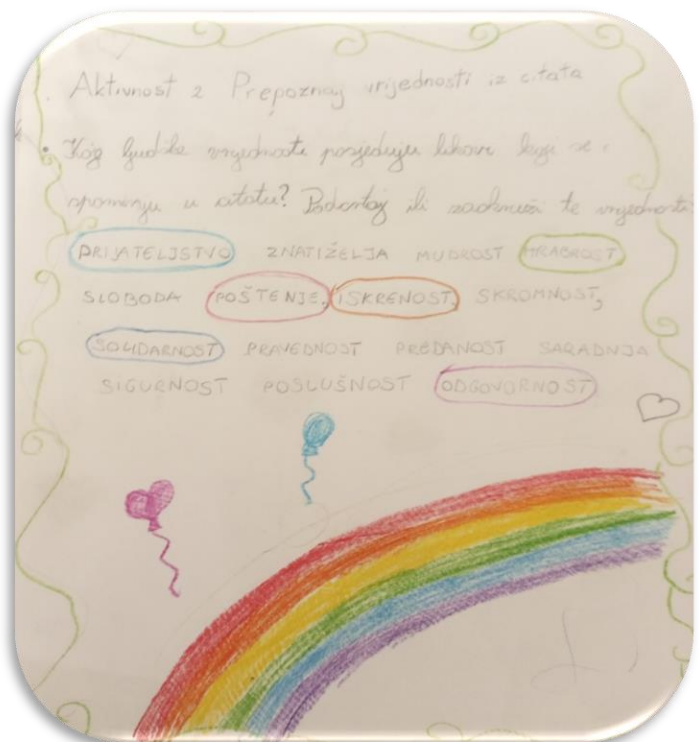 Aktivnost 2 Prepoznaj vrijednosti iz citata
Koje ljudske vrijednosti posjeduju likovi koji se
spominju u citatu? Podcrtaj ili zaokruži te vrijednosti
PRIJATELJSTVO ZNATIŽELJA MUDROST HRABROST,
SLOBODA POŠTENJE, ISKRENOST, SKROMNOST,
SOLIDARNOST PRAVEDNOST PREDANOST SARADNJA
SIGURNOST POSLUŠNOST ODGOVORNOST